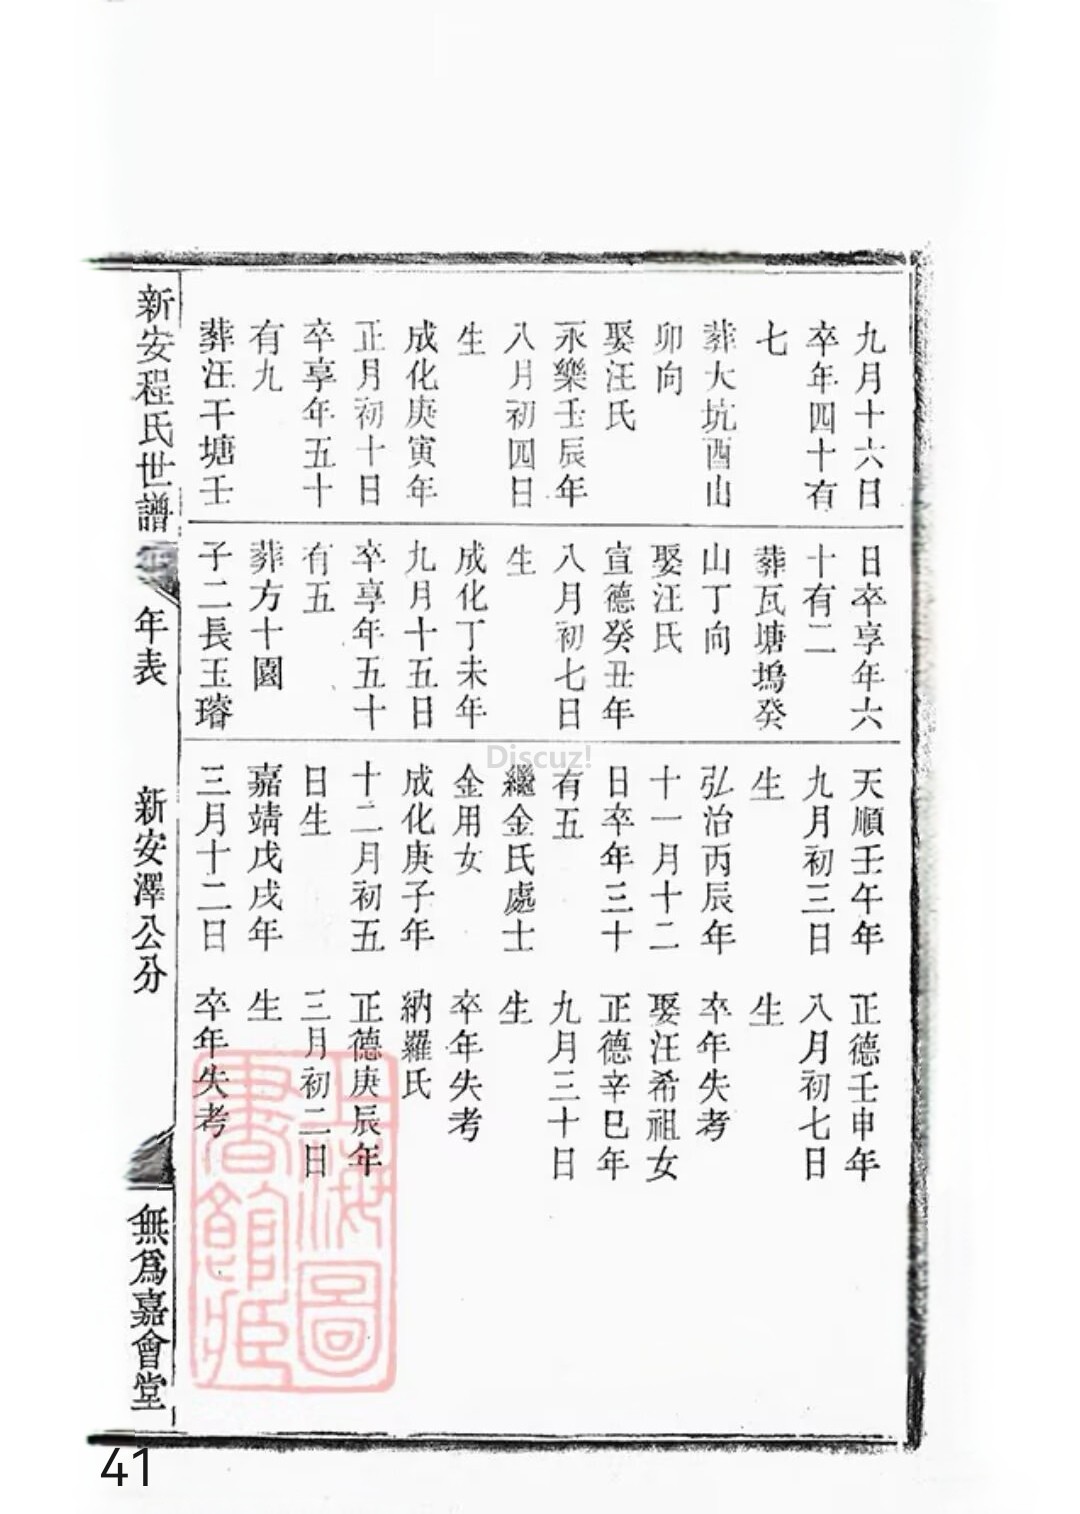 九月十六日
卒年四十有
七
葬大坑酉山
卯向
娶汪氏
永樂壬辰年
八月初四日
生
成化庚寅年
正月初十日
卒享年五十
有九
葬汪干塘壬
日卒享年六
十有二
葬瓦塘塢癸
山丁向
娶汪氏
宣德癸丑年
八月初七日
生
成化丁未年
九月十五日
卒享年五十
有五
葬方十園
子二長玉璿
天順壬午年
九月初三日
生
弘治丙辰年
十一月十二
日卒年三十
有五
繼金氏處士
金用女
成化庚子年
十二月初五
日生
嘉靖戊戌年
三月十二日
正德壬申年
八月初七日
生
卒年失考
娶汪希祖女
正德辛巳年
九月三十日
生
卒年失考
納羅氏
正德庚辰年
三月初二日
生
卒年失考
新安程氏世譜
年表
新安澤公分
無爲嘉會堂
上海圖
書館藏
Discuz!
41